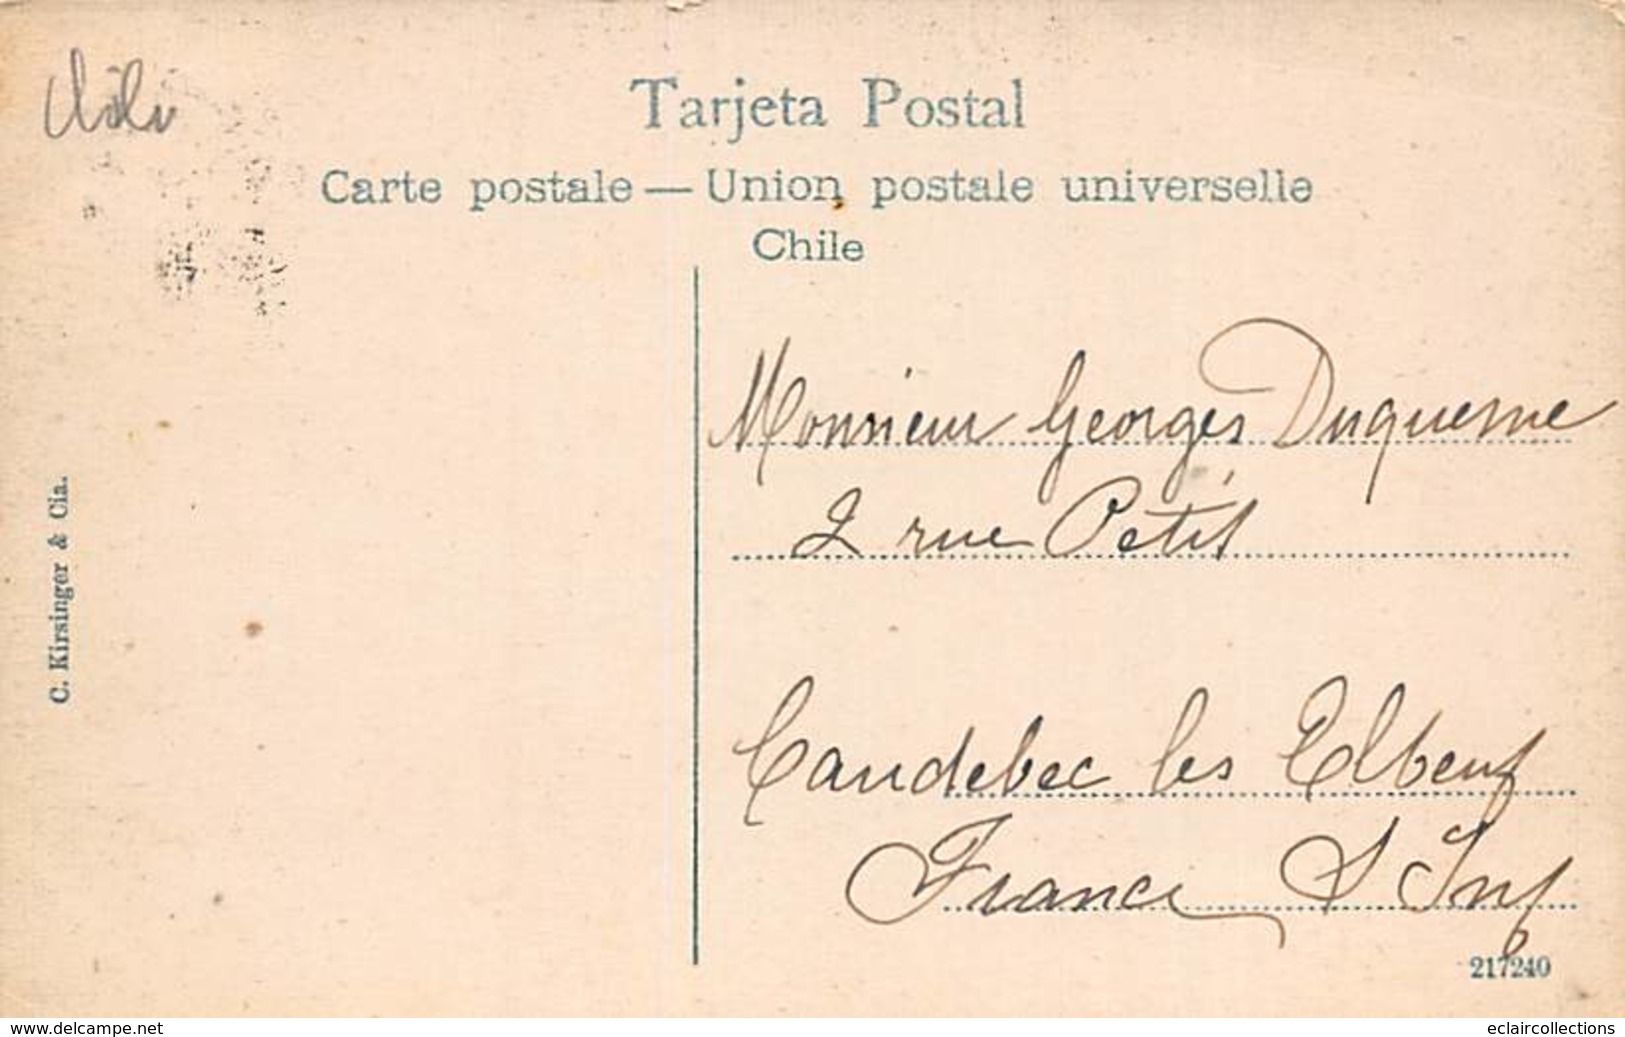 Chili
Tarjeta Postal
Carte postale — Union postale universelle
Chile
Monsieur Georges Duquesne
2 rue Petit
Caudebec les Elbeuf
France S Inf
C. Kirsinger & Cia.
217240
www.delcampe.net
eclaircollections